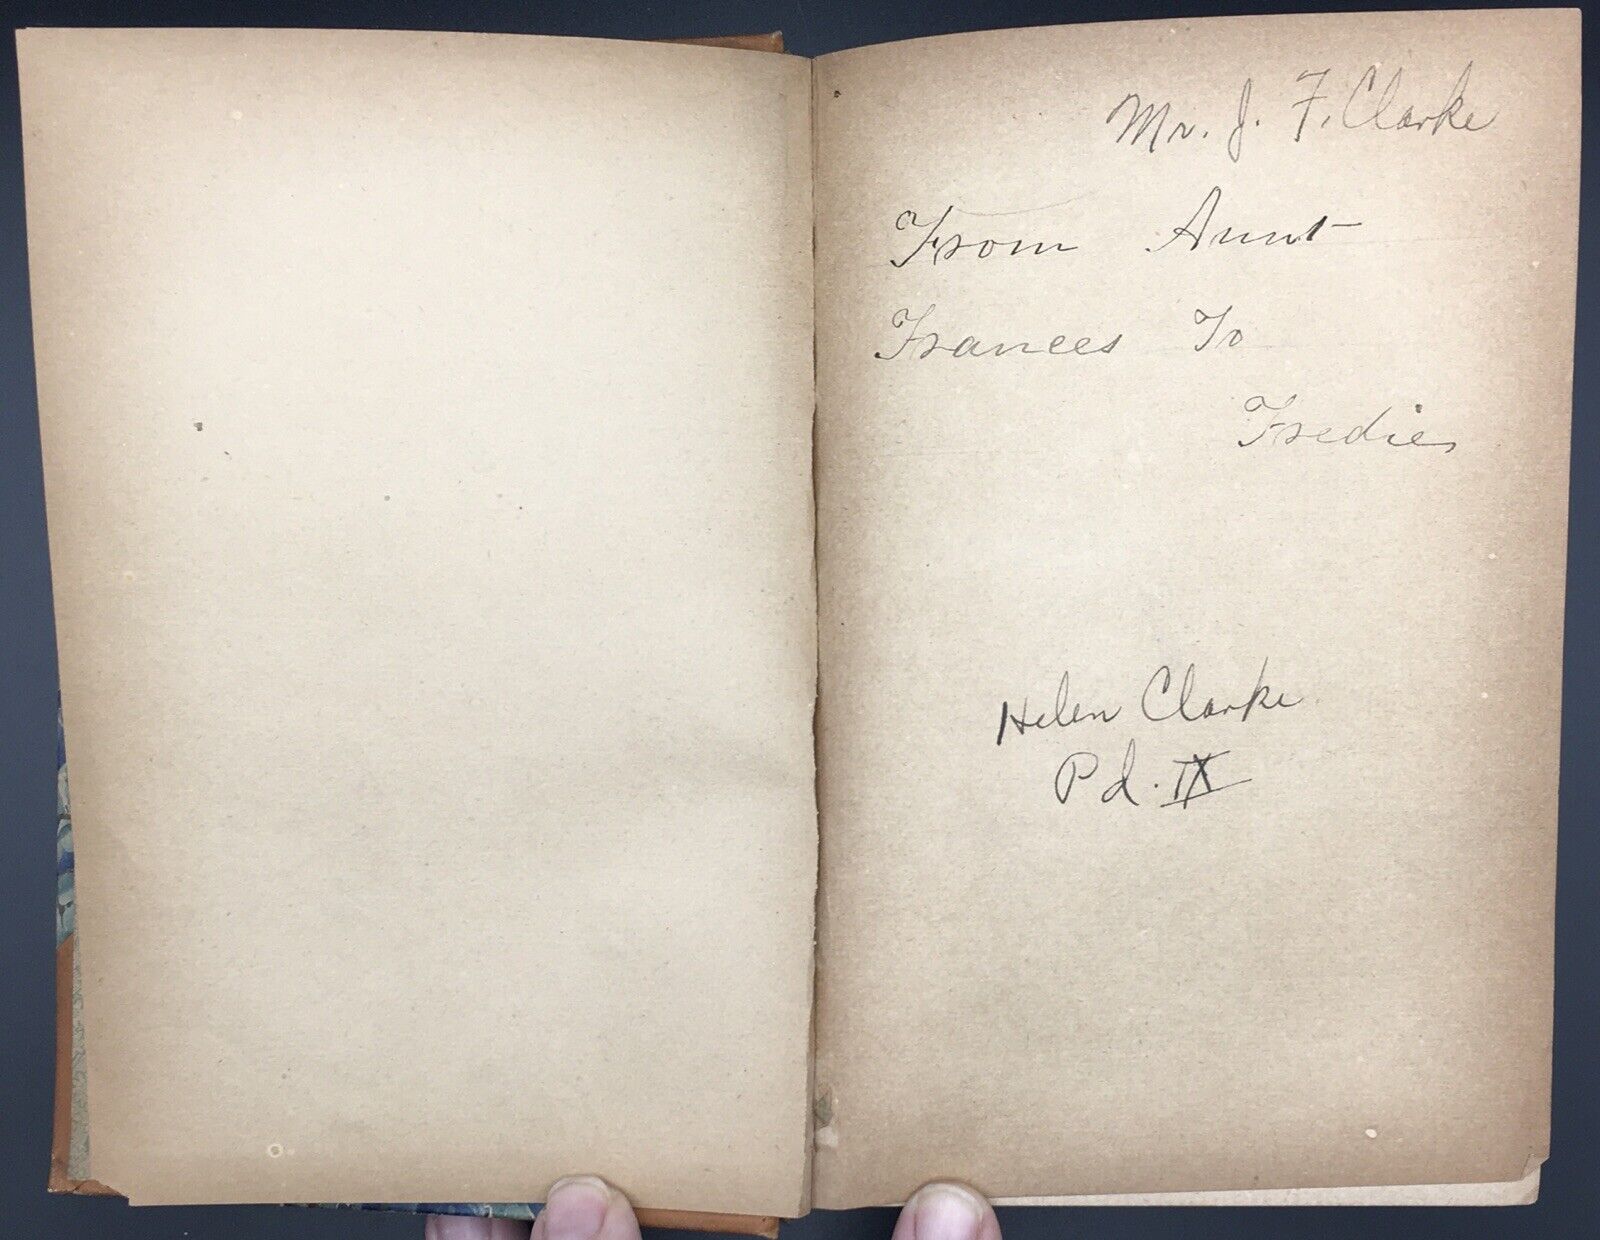 Mr. J. F. Clarke
From Aunt
Frances To
Fredie
Helen Clarke
Pd. IX